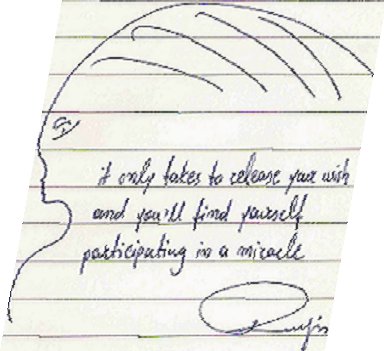 it only takes to release your wish
and you'll find yourself
participating in a miracle